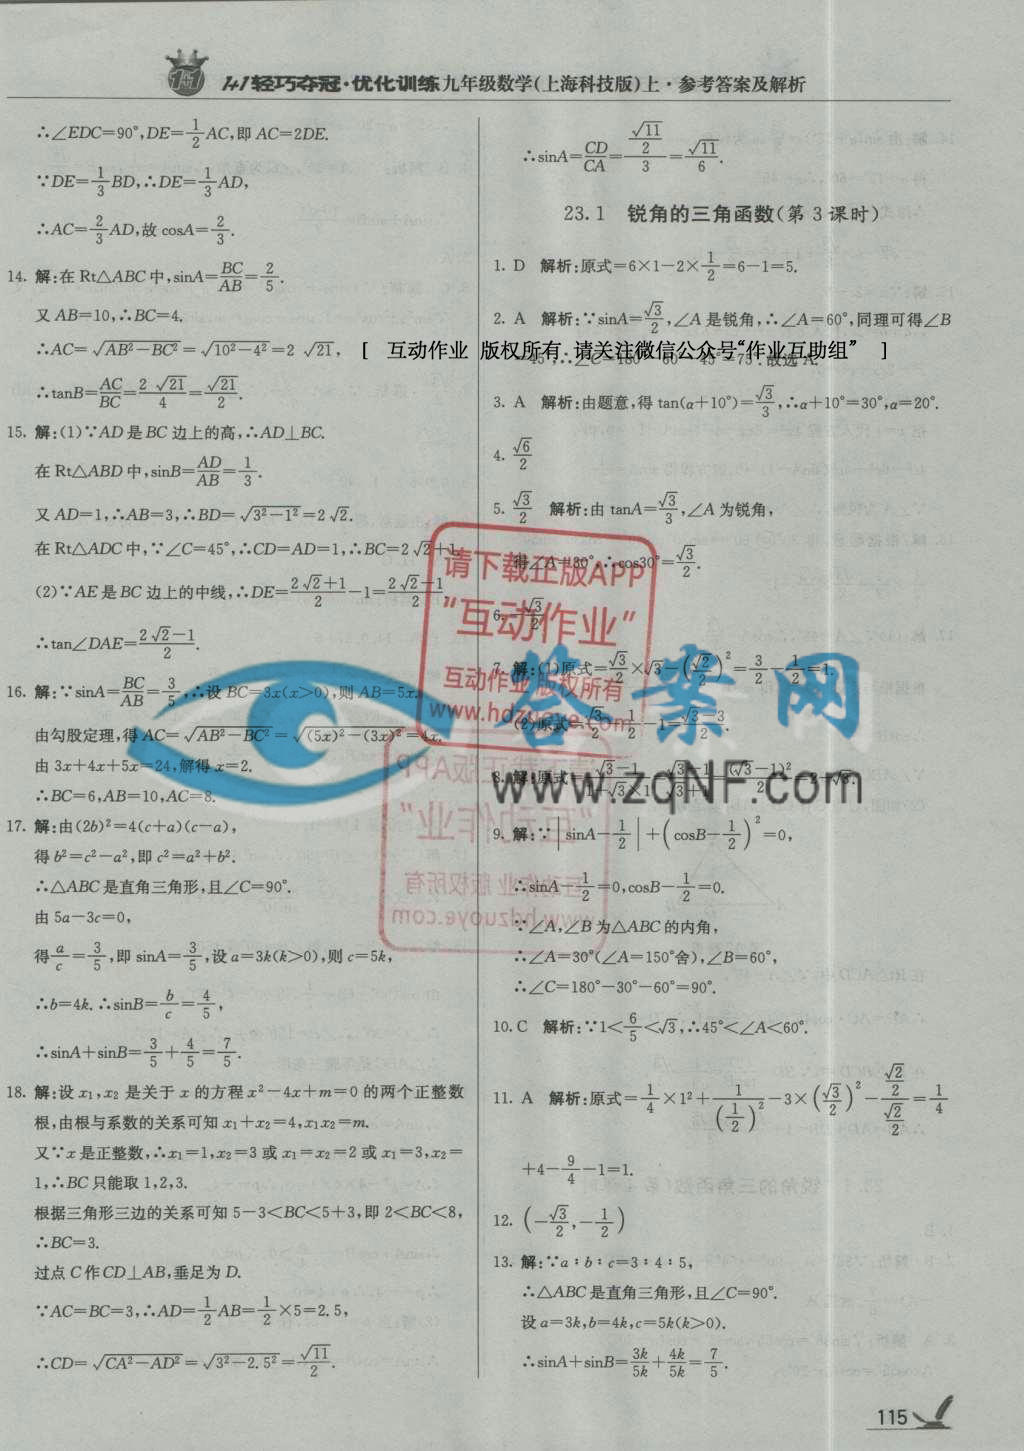 1+1轻巧夺冠·优化训练九年级数学(上海科技版)上·参考答案及解析
∴∠EDC=90°,DE=1/2AC,即AC=2DE.
∵DE=1/3BD,∴DE=1/3AD,
∴AC=2/3AD,故cosA=2/3.
14. 解:在Rt△ABC中,sinA=BC/AB=2/5.
又AB=10,∴BC=4.
∴AC=√(AB²-BC²)=√(10²-4²)=2√21,
∴tanB=AC/BC=2√21/4=√21/2.
15. 解:(1)∵AD是BC边上的高,∴AD⊥BC.
在Rt△ABD中,sinB=AD/AB=1/3.
又AD=1,∴AB=3,∴BD=√(3²-1²)=2√2.
在Rt△ADC中,∵∠C=45°,∴CD=AD=1,∴BC=2√2+1.
(2)∵AE是BC边上的中线,∴DE=(2√2+1)/2-1=(2√2-1)/2,
∴tan∠DAE=(2√2-1)/2.
16. 解:∵sinA=BC/AB=3/5,∴设BC=3x(x>0),则AB=5x,
由勾股定理,得AC=√(AB²-BC²)=√((5x)²-(3x)²)=4x.
由3x+4x+5x=24,解得x=2.
∴BC=6,AB=10,AC=8.
17. 解:由(2b)²=4(c+a)(c-a),
得b²=c²-a²,即c²=a²+b².
∴△ABC是直角三角形,且∠C=90°.
由5a-3c=0,
得a/c=3/5,即sinA=3/5,设a=3k(k>0),则c=5k,
∴b=4k.∴sinB=b/c=4/5,
∴sinA+sinB=3/5+4/5=7/5.
18. 解:设x₁,x₂是关于x的方程x²-4x+m=0的两个正整数
根,由根与系数的关系可知x₁+x₂=4,x₁x₂=m.
又∵x是正整数,∴x₁=1,x₂=3或x₁=x₂=2或x₁=3,x₂=
1,∴BC只能取1,2,3.
根据三角形三边的关系可知5-3<BC<5+3,即2<BC<8,
∴BC=3.
过点C作CD⊥AB,垂足为D.
∵AC=BC=3,∴AD=1/2AB=1/2×5=2.5,
∴CD=√(CA²-AD²)=√(3²-2.5²)=√11/2.
∴sinA=CD/CA=(√11/2)/3=√11/6.
23.1 锐角的三角函数(第3课时)
1. D 解析:原式=6×1-2×1/2=6-1=5.
2. A 解析:∵sinA=√3/2,∠A是锐角,∴∠A=60°,同理可得∠B
[ 互动作业 版权所有 请关注微信公众号“作业互助组” ]
=45°,∴∠C=180°-60°-45°=75°.故选A.
3. A 解析:由题意,得tan(α+10°)=√3/3,∴α+10°=30°,α=20°.
4. √6/2
5. √3/2 解析:由tanA=√3/3,∠A为锐角,
得∠A=30°,∴cos30°=√3/2.
6. -√3/2
7. 解:(1)原式=√3/2×√3-(√2/2)²=3/2-1/2=1.
(2)原式=√3/2-1/2-1=(√3-3)/2.
8. 解:原式=(√3-1)/(1+√3×1)=(√3-1)/(√3+1)=(√3-1)²/2=2-√3.
9. 解:∵|sinA-1/2|+(cosB-1/2)²=0,
∴sinA-1/2=0,cosB-1/2=0.
∵∠A,∠B为△ABC的内角,
∴∠A=30°(∠A=150°舍),∠B=60°,
∴∠C=180°-30°-60°=90°.
10. C 解析:∵1<6/5<√3,∴45°<∠A<60°.
11. A 解析:原式=1/4×1²+1/(1/2)²-3×(√3/2)²-(√2/2)/(√2/2)=1/4
+4-9/4-1=1.
12. (-√3/2,-1/2)
13. 解:∵a∶b∶c=3∶4∶5,
∴△ABC是直角三角形,且∠C=90°.
设a=3k,b=4k,c=5k(k>0).
∴sinA+sinB=3k/5k+4k/5k=7/5.
请下载正版APP
“互动作业”
互动作业 版权所有
www.hdzuoye.com
答案网
www.zqNF.com
115